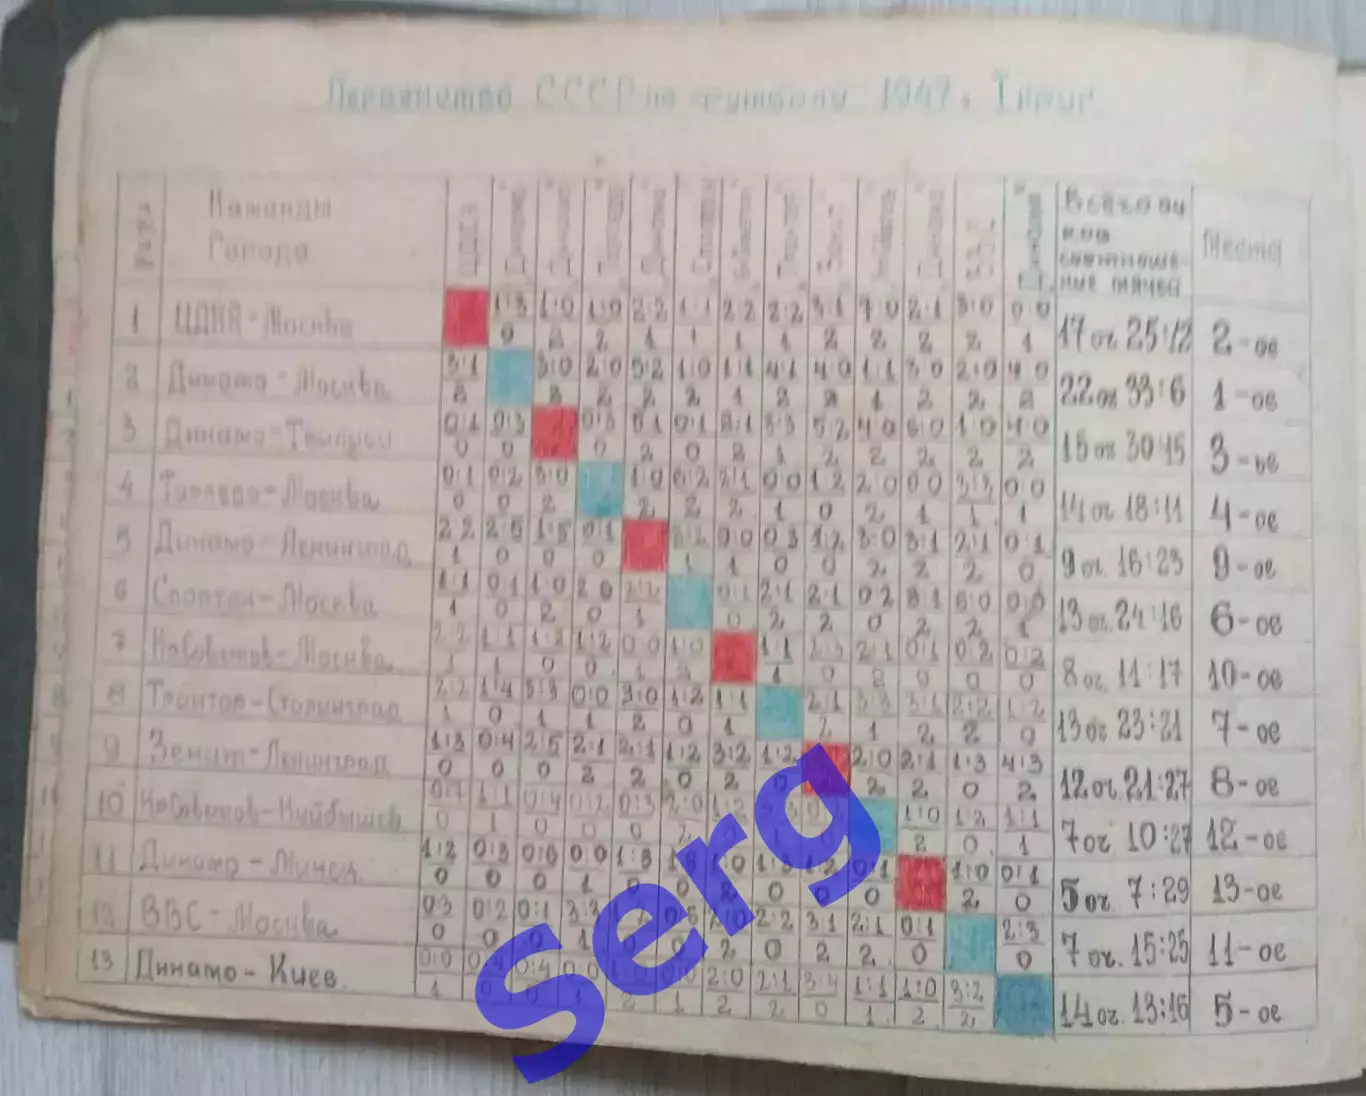 Первенство СССР по футболу 1947г. I круг
Команды Города ЦДКА Динамо Динамо Торпедо Динамо Зенит Динамо Динамо Всего оч ков соотноше- ние мячей Места
1 ЦДКА-Москва 1:3 1:0 1:0 2:2 1:1 2:2 2:2 3:1 7:0 2:1 3:0 0:0 17 оч 25:12 2-ое
0 2 2 1 1 1 1 2 2 2 2 1
2 Динамо-Москва 3:1 3:0 2:0 5:2 1:0 1:1 4:1 4:0 1:1 3:0 2:0 4:0 22 оч 33:6 1-ое
2 2 2 2 2 1 2 2 1 2 2 2
3 Динамо-Тбилиси 0:1 0:3 0:3 5:1 0:1 2:1 3:3 5:2 4:0 6:0 1:0 4:0 15 оч 30:15 3-ье
0 0 0 2 0 2 1 2 2 2 2 2
4 Торпедо-Москва 0:1 0:2 3:0 1:0 0:2 2:1 0:0 1:2 2:0 0:0 3:3 0:0 14 оч 18:11 4-ое
0 0 2 2 2 2 1 0 2 1 1 1
5 Динамо-Ленинград 2:2 2:5 1:5 0:1 2:2 0:0 0:3 1:2 3:0 3:1 2:1 0:1 9 оч. 16:23 9-ое
1 0 0 0 1 1 0 0 2 2 2 0
6 Спартак-Москва 1:1 0:1 1:0 2:0 2:2 0:1 2:1 2:1 0:2 8:1 6:0 0:0 13 оч. 24:16 6-ое
1 0 2 0 1 0 2 2 0 2 2 1
7 Кр Советов-Москва 2:2 1:1 1:2 1:2 0:0 1:0 1:1 2:3 2:1 0:1 0:2 0:2 8 оч. 11:17 10-ое
1 1 0 0 1 2 1 0 2 0 0 0
8 Трактор-Сталинград 2:2 1:4 3:3 0:0 3:0 1:2 1:1 2:1 3:3 3:1 2:2 1:2 13 оч 23:21 7-ое
1 0 1 1 2 0 1 2 1 2 2 0
9 Зенит-Ленинград 1:3 0:4 2:5 2:1 2:1 1:2 3:2 1:2 2:0 2:1 1:3 4:3 12 оч. 21:27 8-ое
0 0 0 2 2 0 2 0 2 2 0 2
10 Кр Советов-Куйбышев 0:7 1:1 0:4 0:2 0:3 2:0 1:2 1:0 1:2 1:1 7 оч 10:27 12-ое
0 1 0 0 0 2 0 2 0 1
11 Динамо-Минск 1:2 0:3 0:6 0:0 1:3 1:8 1:0 1:3 1:2 0:1 1:0 0:1 5 оч. 7:29 13-ое
0 0 0 1 0 0 2 0 0 0 2 0
12 ВВС-Москва 0:3 0:2 0:1 3:3 0:6 2:0 2:2 3:1 2:1 0:1 2:3 7 оч. 15:25 11-ое
0 0 0 1 0 2 0 2 2 0 0
13 Динамо-Киев. 0:0 0:4 0:4 0:0 1:0 0:0 2:0 2:1 3:4 1:1 1:0 3:2 14 оч. 13:16 5-ое
1 0 0 1 2 1 2 2 0 1 2 2
Serg